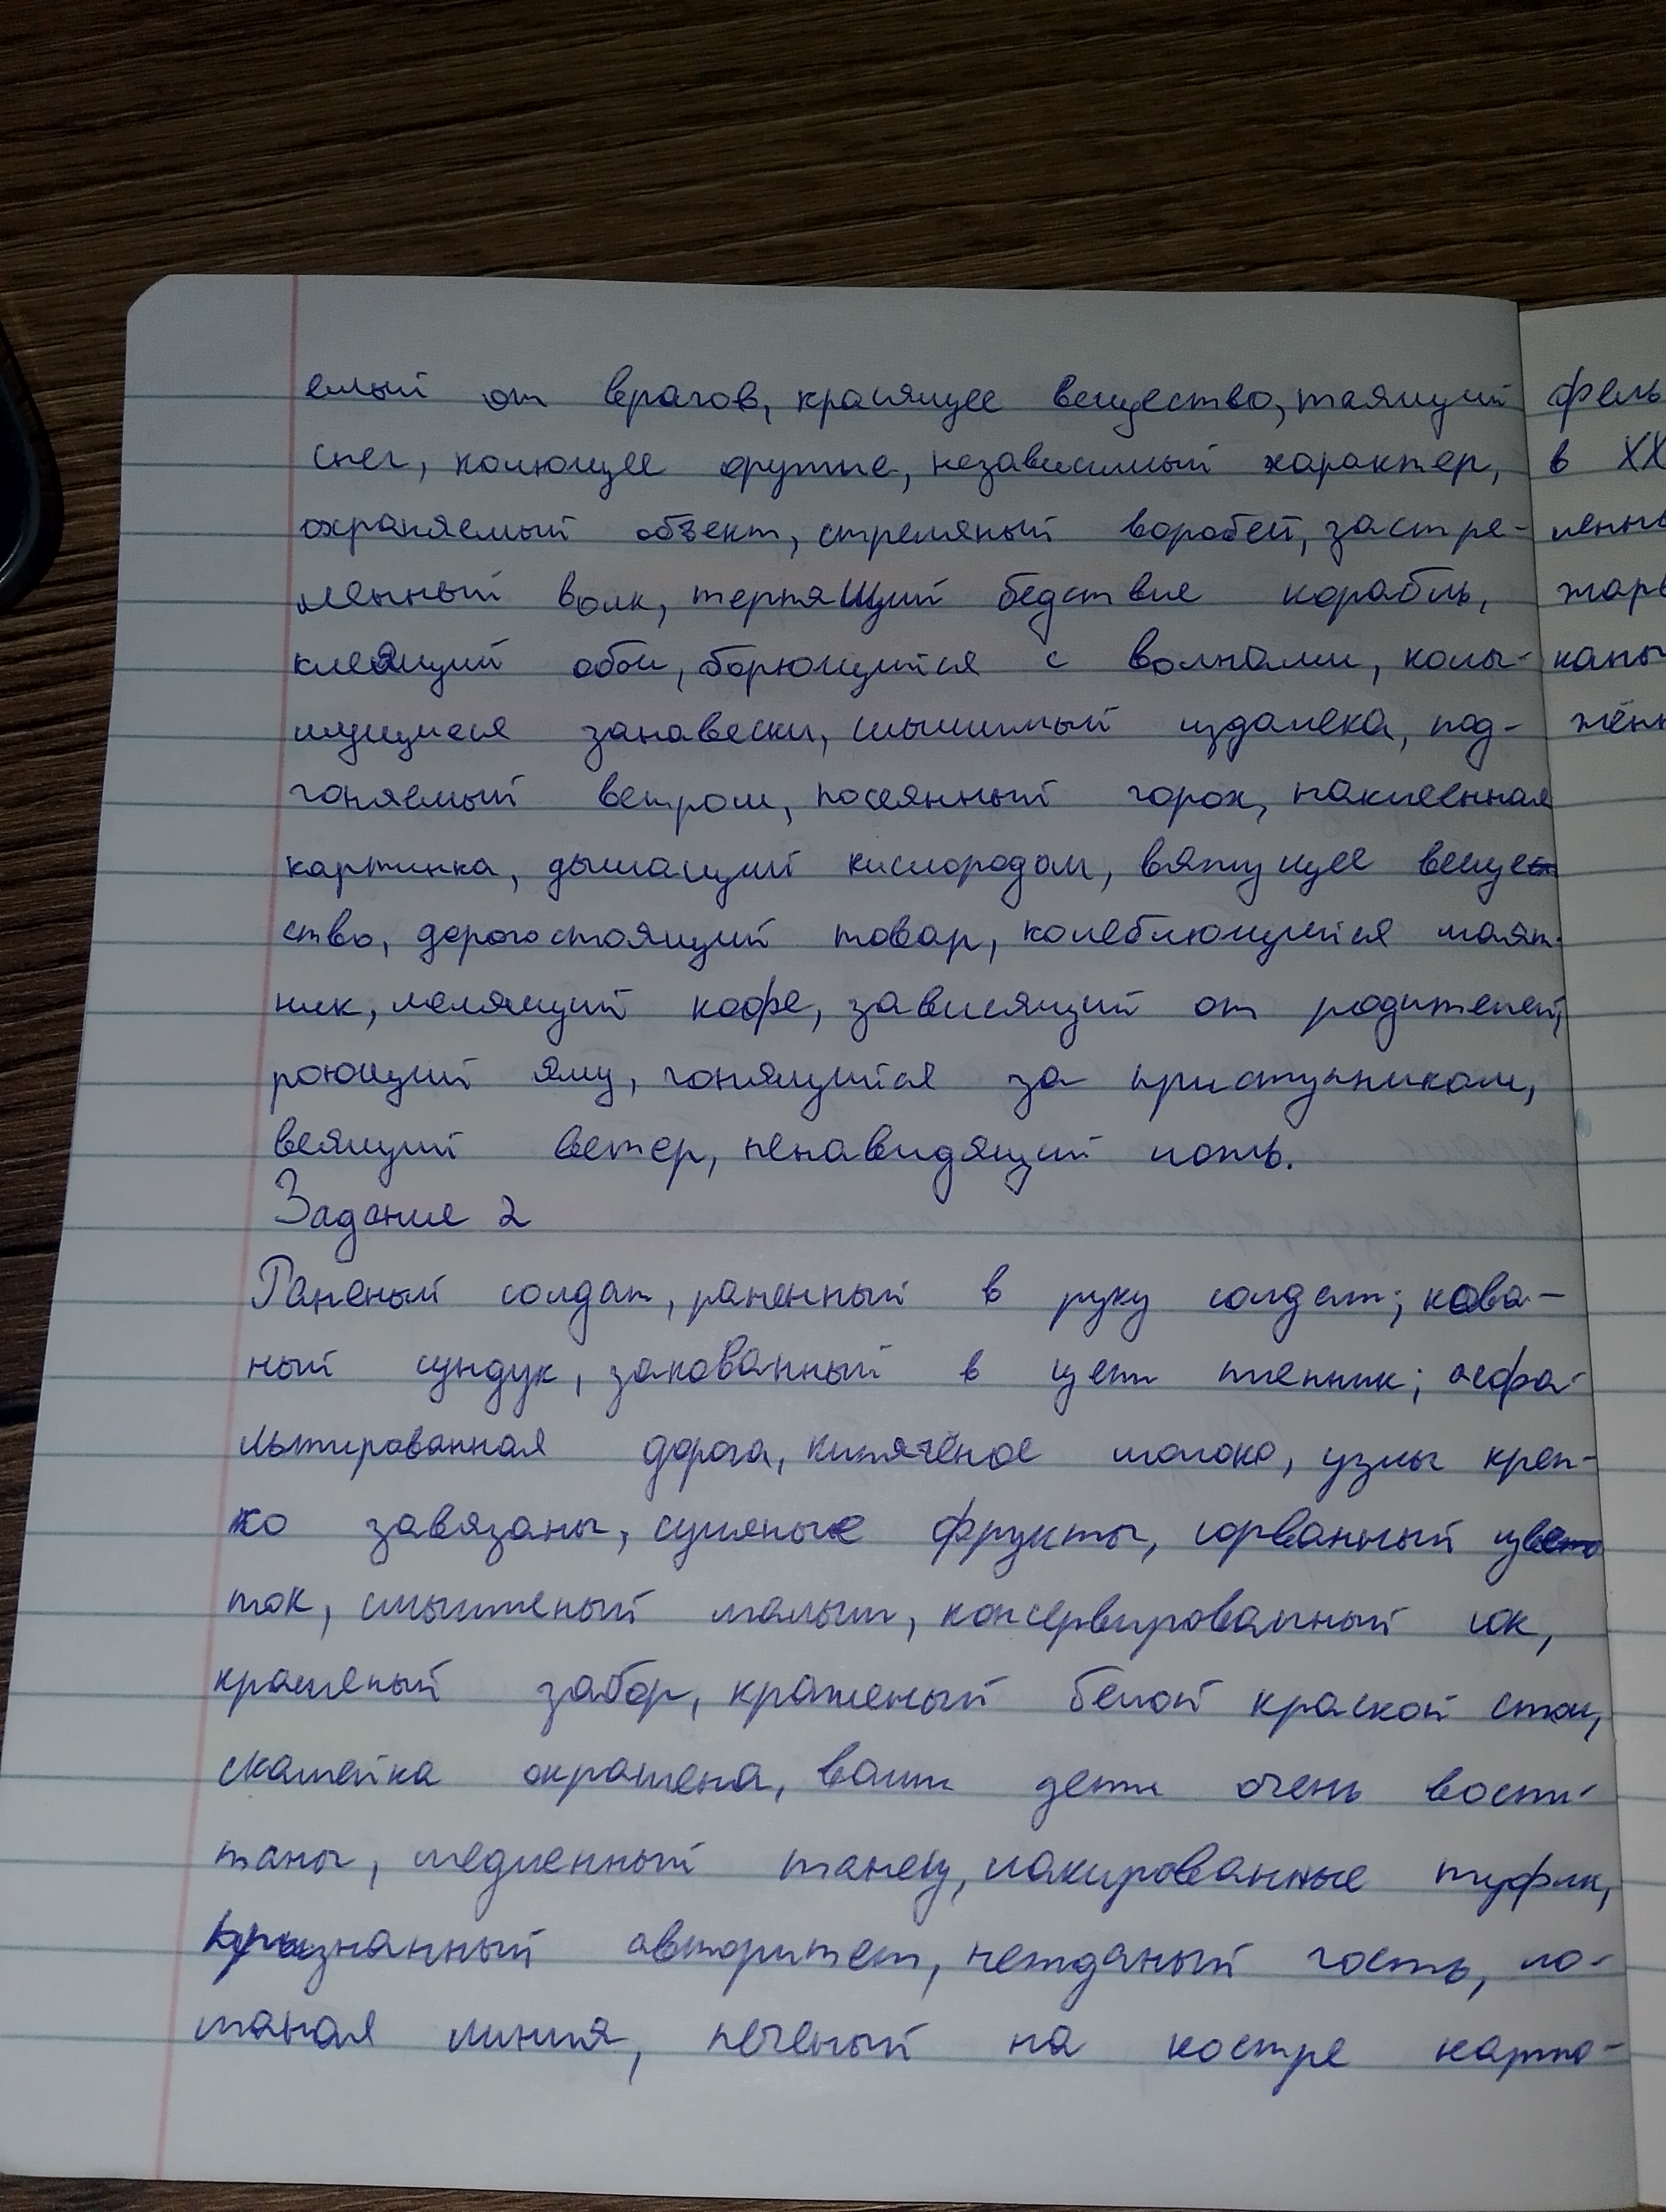 емый от врагов, красящее вещество, таящий
снег, колющее оружие, независимый характер,
охраняемый объект, стреляный воробей, застре-
ленный волк, терпящий бедствие корабль,
клеящий обои, борющийся с волнами, колы-
шущиеся занавески, слышимый издалека, под-
гоняемый ветром, посеянный горох, наклеенная
картинка, дышащий кислородом, вяжущее веще
ство, дорогостоящий товар, колеблющийся маят-
ник, мелящий кофе, зависящий от родителей,
роющий яму, гонящийся за приступником,
веящий ветер, ненавидящий ложь.
Задание 2
Раненый солдат, раненный в руку солдат; кова-
ный сундук, закованный в цепи пленник; асфа-
льтированная дорога, кипячёное молоко, узлы креп-
ко завязаны, сушеные фрукты, сорванный цве
ток, смышленый малыш, консервированный сок,
крашеный забор, крашеный белой краской стол,
скамейка окрашена, ваши дети очень воспи-
таны, медленный танец, лакированные туфли,
признанный авторитет, нежданый гость, ло-
маная линия, печеный на костре карто-
фель
в XX
ленны
жаре
каны
жённ